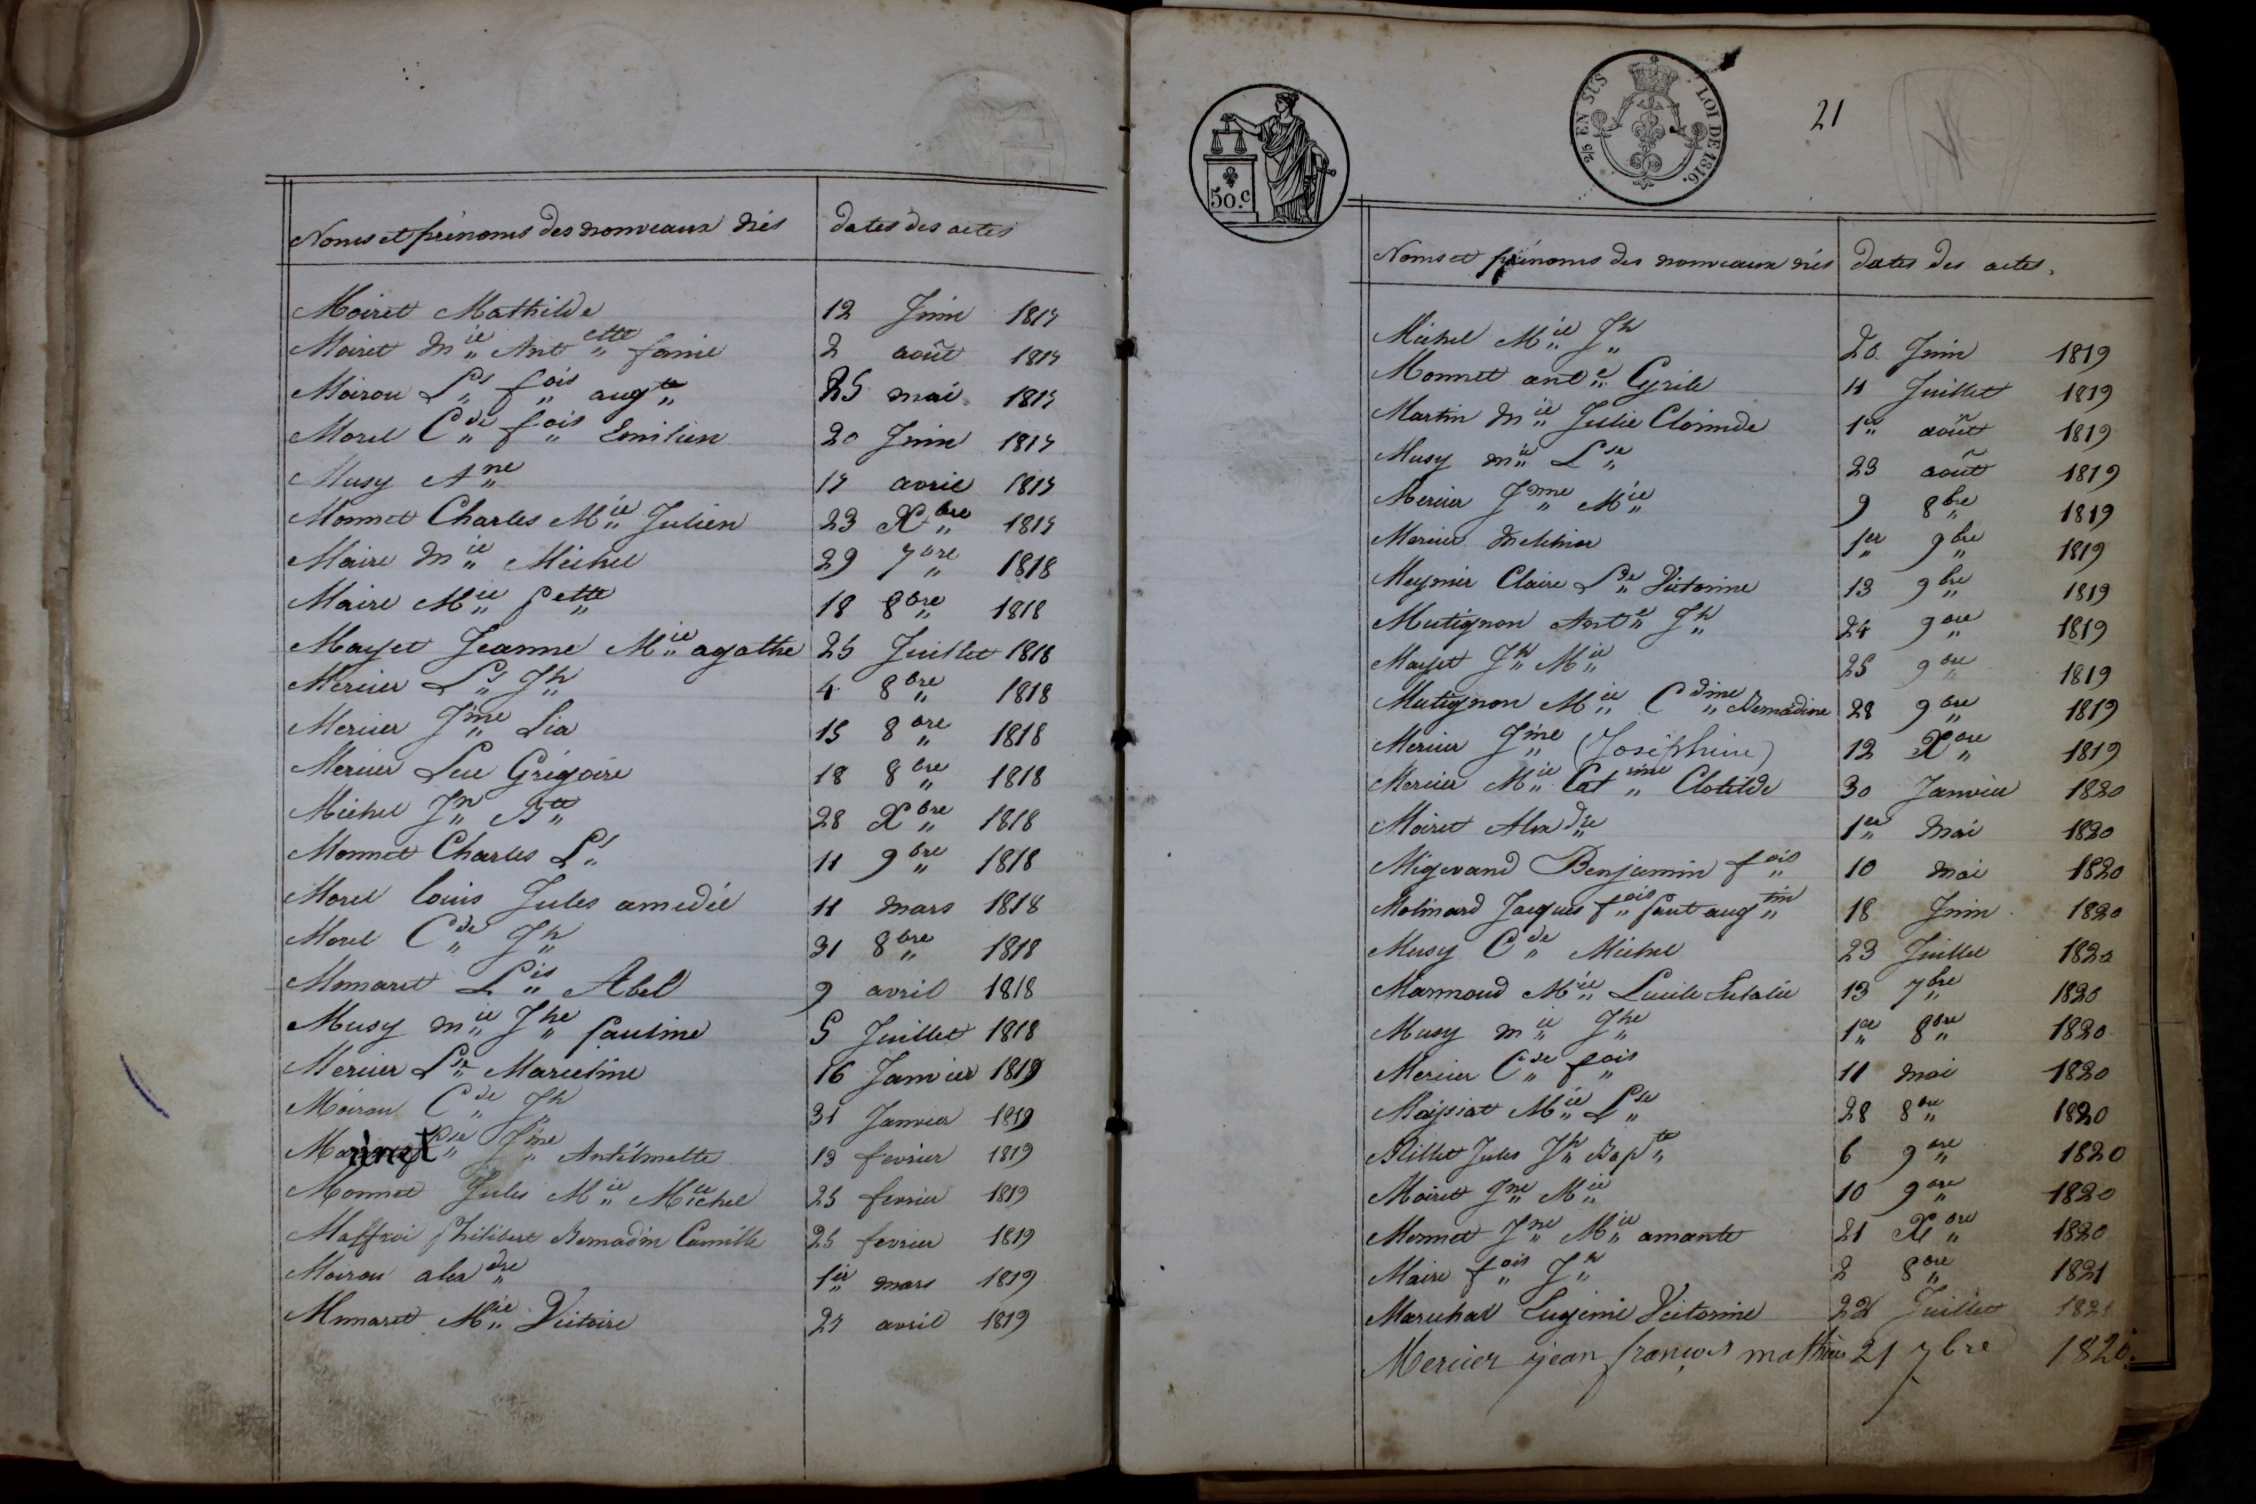 Noms et prénoms des nouveaux nés dates des actes
Moiret Mathilde 12 Juin 1817
Moiret Mie Antette fanie 2 août 1817
Moirou Ls fois augte 25 mai 1817
Morel Cde fois Emilien 20 Juin 1817
Musy Ane 17 avril 1817
Monnet Charles Mie Julien 23 Xbre 1817
Maire Mie Michel 29 7bre 1818
Maire Mie Pette 18 8bre 1818
Mayet Jeanne Mie agathe 25 Juillet 1818
Mercier Ls Jh 4 8bre 1818
Mercier Jme Lia 15 8bre 1818
Mercier Luc Grégoire 18 8bre 1818
Michel Jn Bte 28 Xbre 1818
Monnet Charles Ls 11 9bre 1818
Morel louis Jules amedée 11 mars 1818
Morel Cde Jh 31 8bre 1818
Momaret Lis Abel 9 avril 1818
Musy mie Jhe Pauline 5 Juillet 1818
Mercier Lse Marceline 16 Janvier 1819
Moirou Cde Jh 31 Janvier 1819
Jme Antelmette 13 fevrier 1819
Monnet Jules Mie Michel 25 fevrier 1819
Maffroi Philibert Bernadin Camille 25 fevrier 1819
Moirou alexdre 1er mars 1819
Mie Victoire 27 avril 1819
50.c
2/5 EN SUS LOI DE 1816.
21
Noms et prénoms des nouveaux nés dates des actes.
Michel Mie Jh 20 Juin 1819
Monnet ante Cyrile 11 Juillet 1819
Martin Mie Julie Clorinde 1er août 1819
Musy mie Lse 23 août 1819
Mercier Jme Mie 9 8bre 1819
Mercier 1er 9bre 1819
Meynier Claire Lse Victorine 13 9bre 1819
Mutignon Ante Jh 24 9bre 1819
Mayet Jh Mie 25 9bre 1819
Mutignon Mie Cdine Bernadine 28 9bre 1819
Mercier Jine (Joséphine) 12 Xbre 1819
Mercier Mie Catrine Clotilde 30 Janvier 1820
Moiret Alexdre 1er Mai 1820
Migevand Benjamin fois 10 mai 1820
Molinard Jacques fois Paul augtin 18 Juin 1820
Musy Cde Michel 23 Juillet 1820
Marmoud Mie Lucile Eulalie 13 7bre 1820
Musy mie Jhe 1er 8bre 1820
Mercier Cde fois 11 mai 1820
Moÿsiat Mie Lse 28 8bre 1820
Millet Jules Jh Bapte 6 9bre 1820
Moiret Jne Mie 10 9bre 1820
Monnet Jne Mie amante 21 Xbre 1820
Maire fois Jh 2 8bre 1821
Marechal Eugénie Victorine 22 Juillet 1821
Mercier jean françois mathieu 21 7bre 1820.